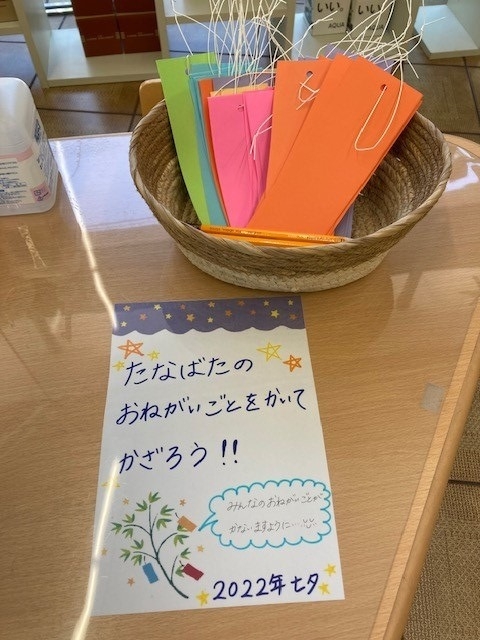 いい。
いい。
AQUA
たなばたの
おねがいごとをかいて
かざろう!!
みんなのおねがいごとが
かないますように…
2022年 七夕